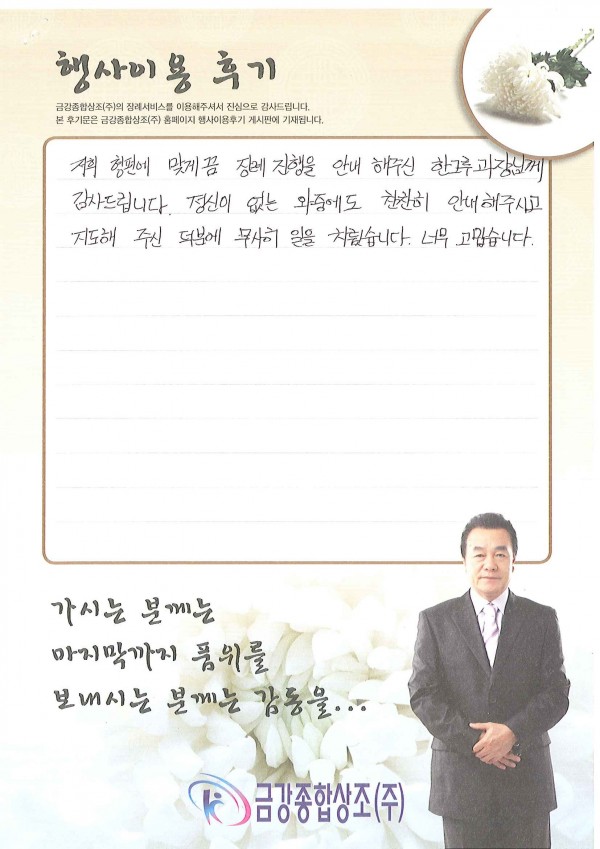 행사이용 후기
금강종합상조(주)의 장례서비스를 이용해주셔서 진심으로 감사드립니다.
본 후기문은 금강종합상조(주) 홈페이지 행사이용후기 게시판에 기재됩니다.
저희 형편에 맞게끔 장례 진행을 안내 해주신 한그루 과장님께
감사드립니다. 정신이 없는 와중에도 찬찬히 안내해주시고
지도해 주신 덕분에 무사히 일을 치뤘습니다. 너무 고맙습니다.
가시는 분께는
마지막까지 품위를
보내시는 분께는 감동을...
금강종합상조(주)